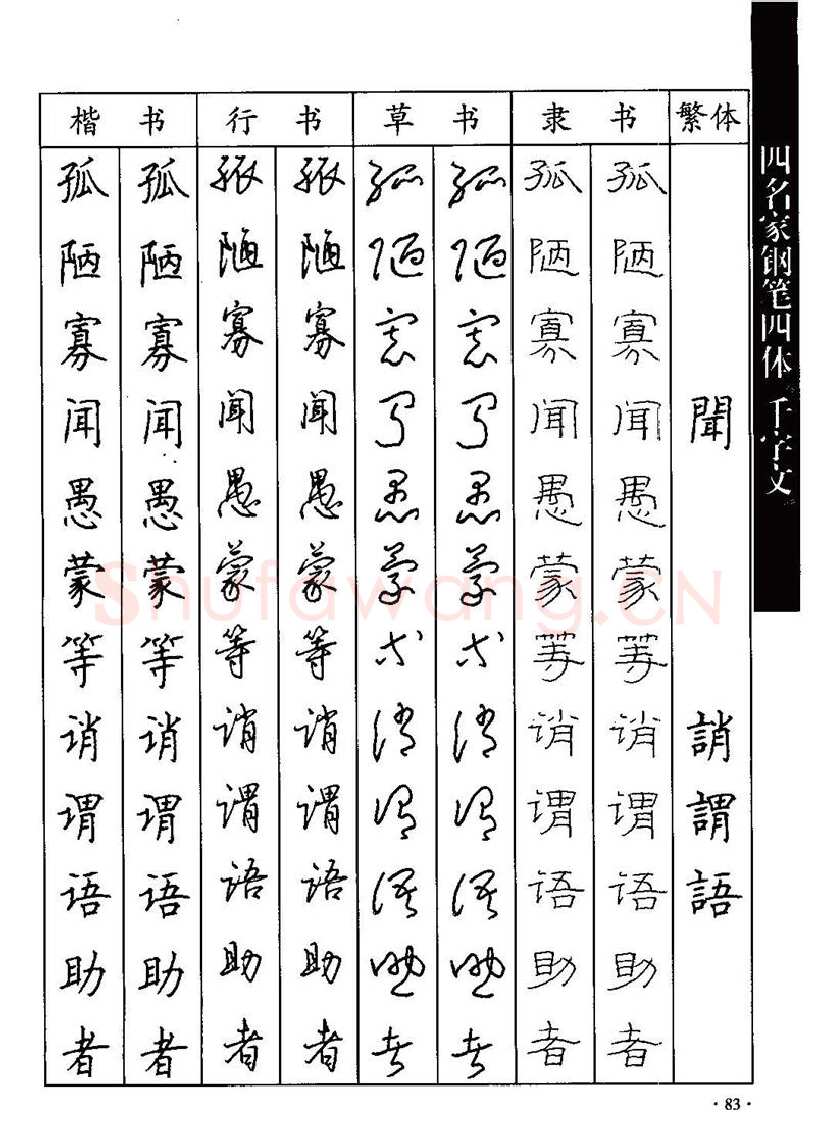 楷书 行书 草书 隶书 繁体
孤 孤 孤 孤 孤 孤 孤 孤
陋 陋 陋 陋 陋 陋 陋 陋
寡 寡 寡 寡 寡 寡 寡 寡
闻 闻 闻 闻 闻 闻 闻 闻 聞
愚 愚 愚 愚 愚 愚 愚 愚
蒙 蒙 蒙 蒙 蒙 蒙 蒙 蒙
等 等 等 等 等 等 等 等
诮 诮 诮 诮 诮 诮 诮 诮 誚
谓 谓 谓 谓 谓 谓 谓 谓 謂
语 语 语 语 语 语 语 语 語
助 助 助 助 助 助 助 助
者 者 者 者 者 者 者 者
四名家钢笔四体 千字文
Shufawang.CN
·83·